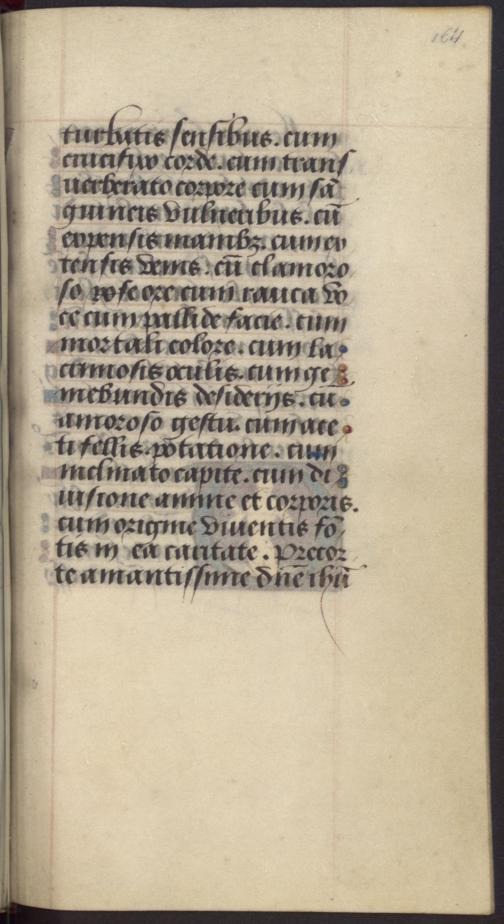 164
turbatis sensibus . cum
crucifixo corde . cum trans
uerberato corpore cum sā
guineis vulneribus . cū
expensis manibꝫ . cum ex
tensis venis . cū clamoro
so ore cum rauca vo
ce cum pallide facie . cum
mortali colore . cum la
crimosis oculis . cum ge
mebundis desiderijs . cū
amoroso gestu . cum ace
ti fellis potatione . cum
inclinato capite . cum di
uisione anime et corporis .
cum origine viventis fō
tis in ea caritate . Precor
te amantissime dn̄e ihū